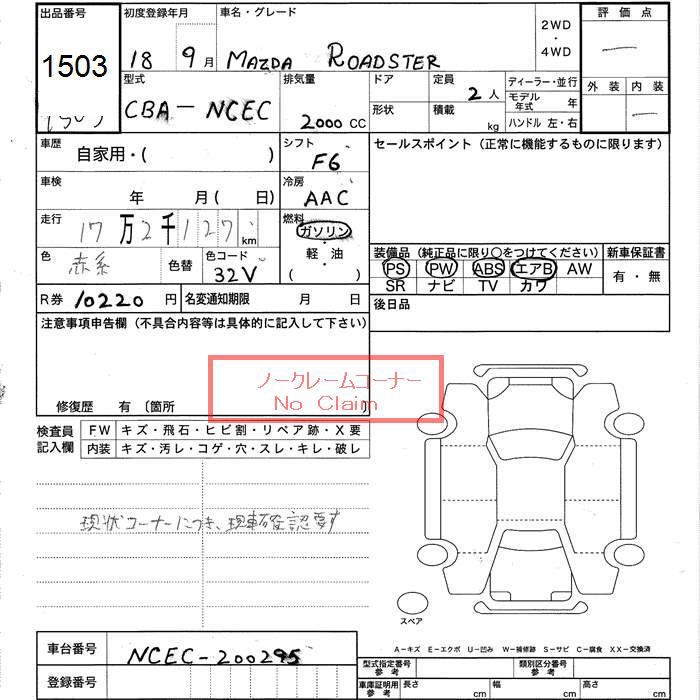 出品番号 初度登録年月 車名・グレード 2WD・4WD 評価点
1503 18 9月 MAZDA ROADSTER
外装 内装
型式 排気量 ドア 定員 2人 ディーラー・並行
CBA-NCEC 2000CC 形状 積載 kg モデル年式 年
ハンドル 左・右
車歴 自家用・( ) シフト F6 セールスポイント(正常に機能するものに限ります)
車検 年 月( 日) 冷房 AAC
走行 17万2千127km 燃料 ガソリン・軽油・( )
色 赤系 色替 色コード 32V
装備品(純正品に限り○をつけてください) 新車保証書
PS PW ABS エアB AW 有・無
SR ナビ TV カワ
R券 10220円 名変通知期限 月 日 後日品
注意事項申告欄(不具合内容等は具体的に記入して下さい)
ノークレームコーナー
No Claim
修復歴 有〔箇所
検査員記入欄 FW キズ・飛石・ヒビ割・リペア跡・X要
内装 キズ・汚レ・コゲ・穴・スレ・キレ・破レ
現状コーナーにつき、現車確認要す
スペア
A-キズ E-エクボ U-凹み W-補修跡 S-サビ C-腐食 XX-交換済
車台番号 NCEC-200295 型式指定番号 参考 類別区分番号 参考
登録番号 車庫証明用 参考 長さ cm 幅 cm 高さ cm